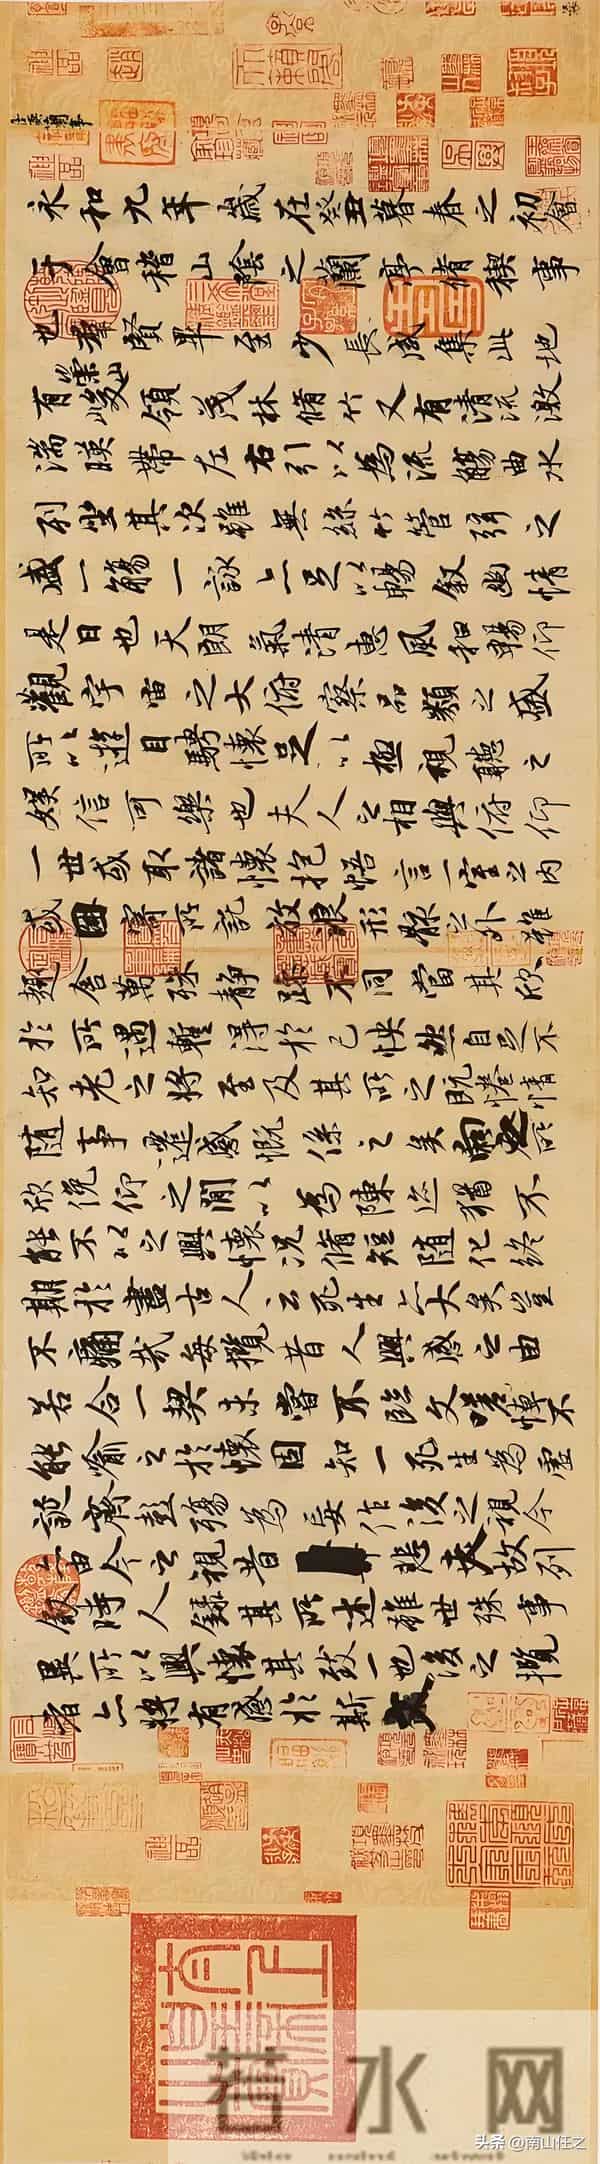 永和九年歲在癸丑暮春之初會
于會稽山陰之蘭亭脩稧事
也群賢畢至少長咸集此地
有崇山峻領茂林脩竹又有清流激
湍暎帶左右引以為流觴曲水
列坐其次雖無絲竹管弦之
盛一觴一詠亦足以暢敘幽情
是日也天朗氣清惠風和暢仰
觀宇宙之大俯察品類之盛
所以遊目騁懷足以極視聽之
娛信可樂也夫人之相與俯仰
一世或取諸懷抱悟言一室之內
或因寄所託放浪形骸之外雖
趣舍萬殊靜躁不同當其欣
於所遇暫得於己怏然自足不
知老之將至及其所之既惓情
隨事遷感慨係之矣向之所
欣俛仰之閒以為陳迹猶不
能不以之興懷況脩短隨化終
期於盡古人云死生亦大矣豈
不痛哉每攬昔人興感之由
若合一契未嘗不臨文嗟悼不
能喻之於懷固知一死生為虛
誕齊彭殤為妄作後之視今
亦由今之視昔悲夫故列
敘時人錄其所述雖世殊事
異所以興懷其致一也後之攬
者亦將有感於斯文
水网
头条 @南山任之